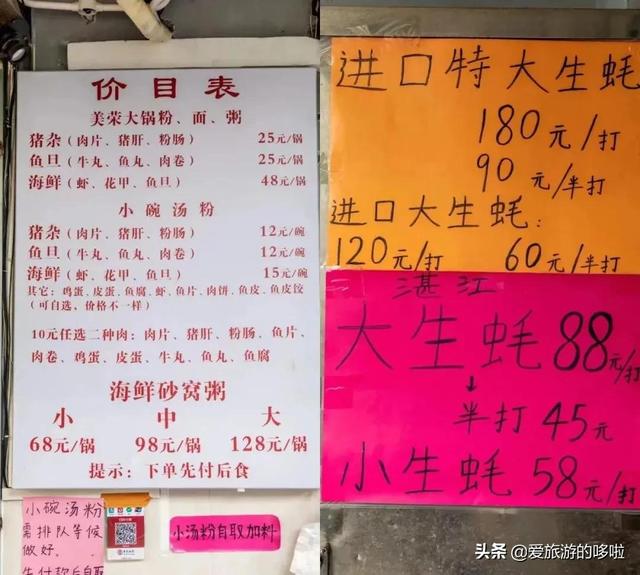 价目表
美荣大锅粉、面、粥
猪杂（肉片、猪肝、粉肠） 25元/锅
鱼旦（牛丸、鱼丸、肉卷） 25元/锅
海鲜（虾、花甲、鱼旦） 48元/锅
小碗汤粉
猪杂（肉片、猪肝、粉肠） 12元/碗
鱼旦（牛丸、鱼丸、肉卷） 12元/碗
海鲜（虾、花甲、鱼旦） 15元/碗
其它：鸡蛋、皮蛋、鱼腐、虾、鱼片、肉饼、鱼皮、鱼皮饺
（可自选，价格不一样）
10元任选二种肉：肉片、猪肝、粉肠、鱼片、
肉卷、鸡蛋、皮蛋、牛丸、鱼丸、鱼腐
海鲜砂窝粥
小 中 大
68元/锅 98元/锅 128元/锅
提示：下单先付后食
小碗汤粉
需排队等候
做好。
先付款后自取
小汤粉自取加料
进口特大生蚝
180元/打
90元/半打
进口大生蚝：
120元/打 60元/半打
湛江
大生蚝88元/打
↓
半打45元
小生蚝58元/打
头条 @爱旅游的哆啦